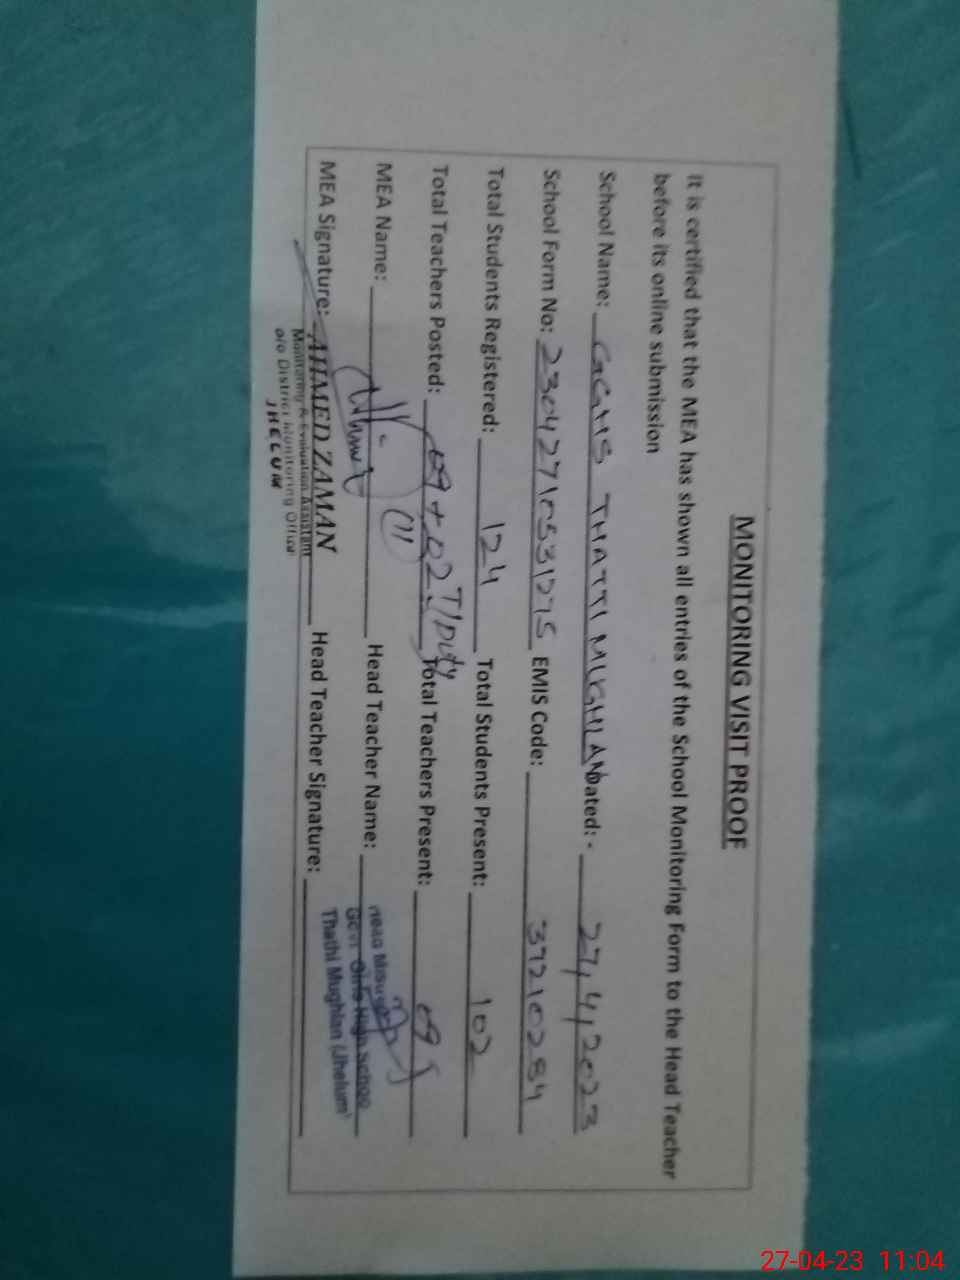 MONITORING VISIT PROOF
It is certified that the MEA has shown all entries of the School Monitoring Form to the Head Teacher
before its online submission
School Name: GGHS THATTI MUGHLAN Dated: - 27,4,2023
School Form No: 23042710531275 EMIS Code: 37210284
Total Students Registered: 124 Total Students Present: 102
Total Teachers Posted: 09+02 T/Duty Total Teachers Present: 09
(11)
MEA Name: Head Teacher Name:
MEA Signature: AHMED ZAMAN Head Teacher Signature:
Monitoring & Evaluation Assistant
o/o District Monitoring Office
JHELUM
Head
Govt. Girls High School
Thathi Mughlan (Jhelum)
27-04-23 11:04